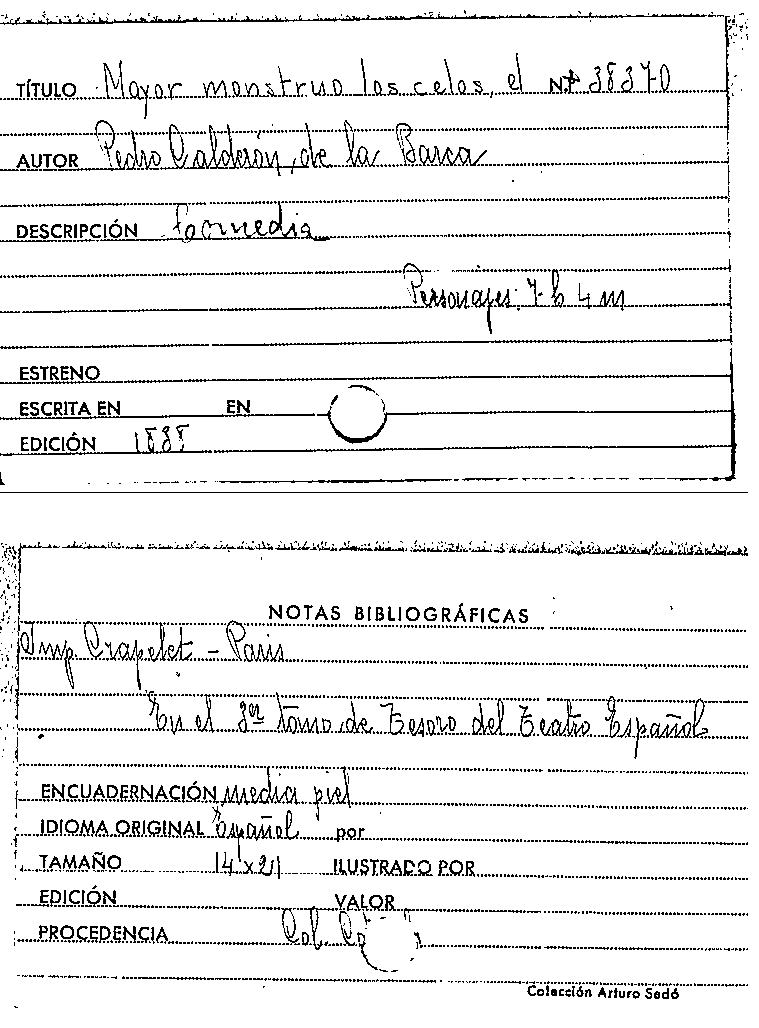 TÍTULO Mayor monstruo los celos, el Nº 38370
AUTOR Pedro Calderón, de la Barca
DESCRIPCIÓN Comedia
Personajes: 7 h 4 m
ESTRENO
ESCRITA EN EN
EDICIÓN 1838
NOTAS BIBLIOGRÁFICAS
Imp. Crapelet - Paris
En el 3er tomo de Tesoro del Teatro Español
ENCUADERNACIÓN media piel
IDIOMA ORIGINAL Español por
TAMAÑO 14 x 21 ILUSTRADO POR
EDICIÓN VALOR
PROCEDENCIA Col.
Colección Arturo Sedó